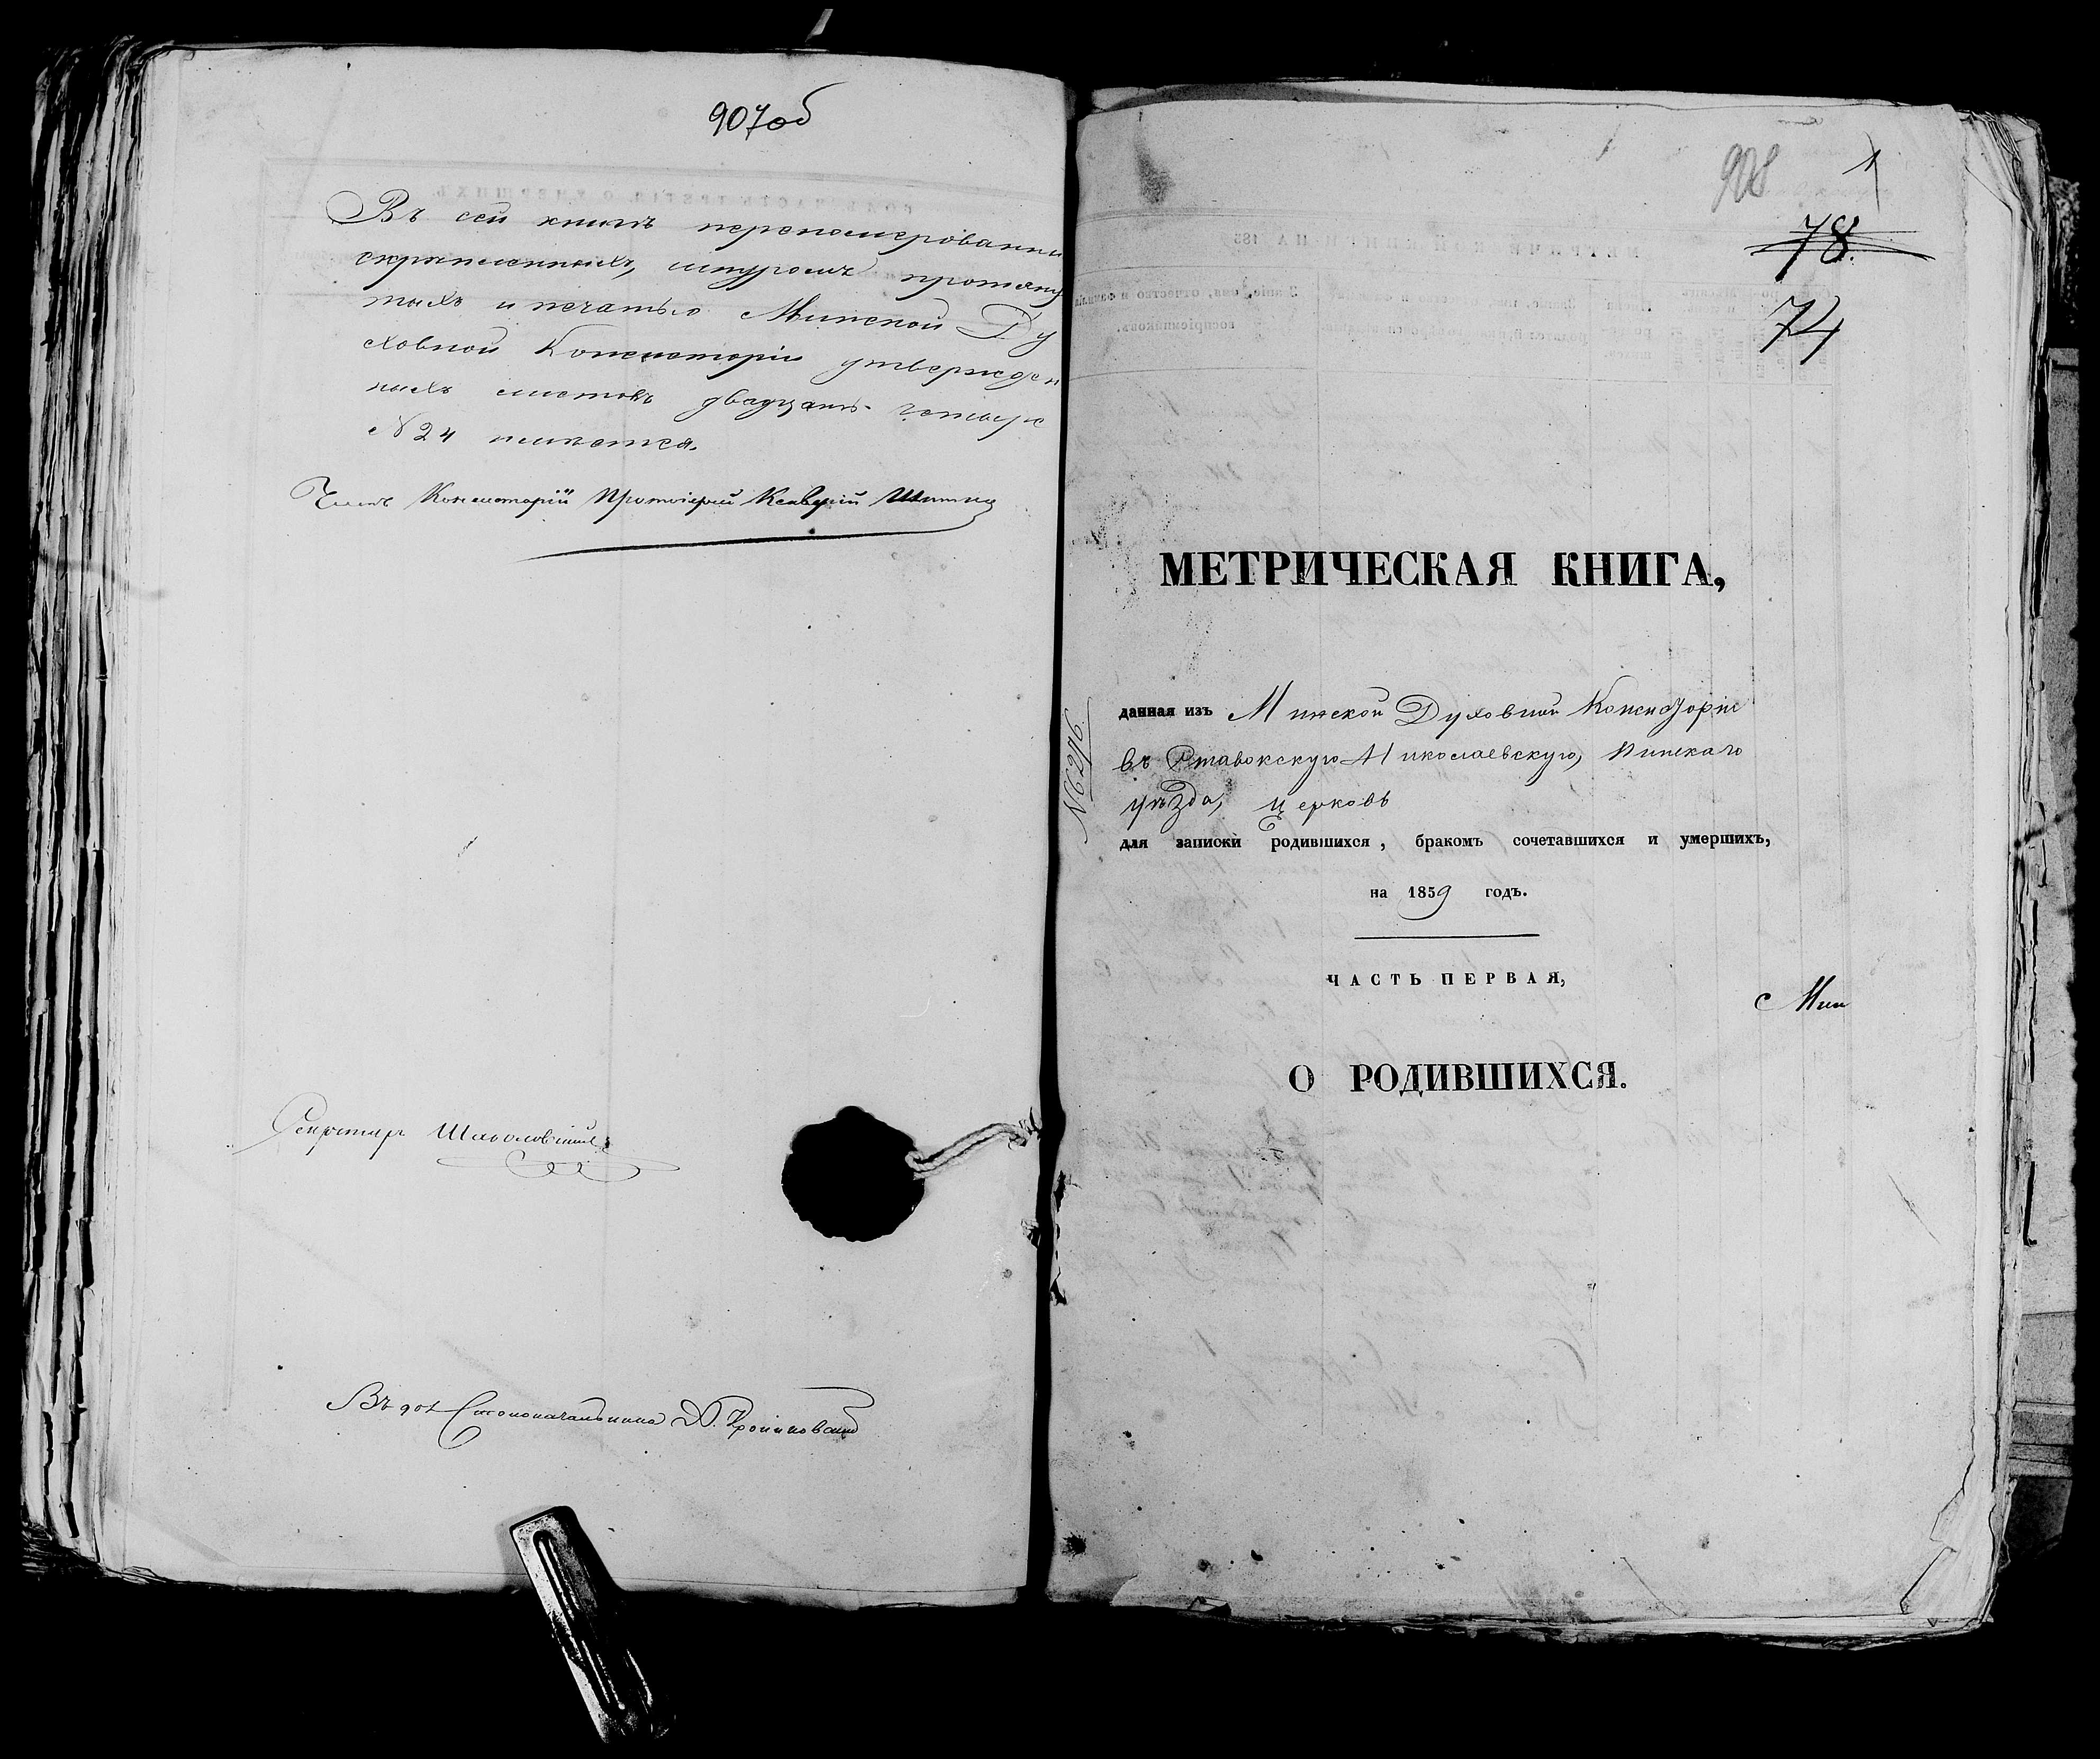 907об
Въ сей книгѣ перенумерованны
скрѣпленныхъ, шнуромъ протяну
тыхъ и печатью Минской Ду
ховной Консисторіи утвержден
ныхъ листовъ двадцать четыре
№ 24 имѣется.
Членъ Консисторіи Протоіерей
Секретарь
Въ дол. Столоначальника
908
1
78.
74
МЕТРИЧЕСКАЯ КНИГА,
данная изъ Минской Духовной Консисторіи
въ Ставокскую Николаевскую, Пинскаго
уѣзда, церковь
№6216
для записки родившихся, бракомъ сочетавшихся и умершихъ,
на 1859 годъ.
ЧАСТЬ ПЕРВАЯ,
с Мин
О РОДИВШИХСЯ.